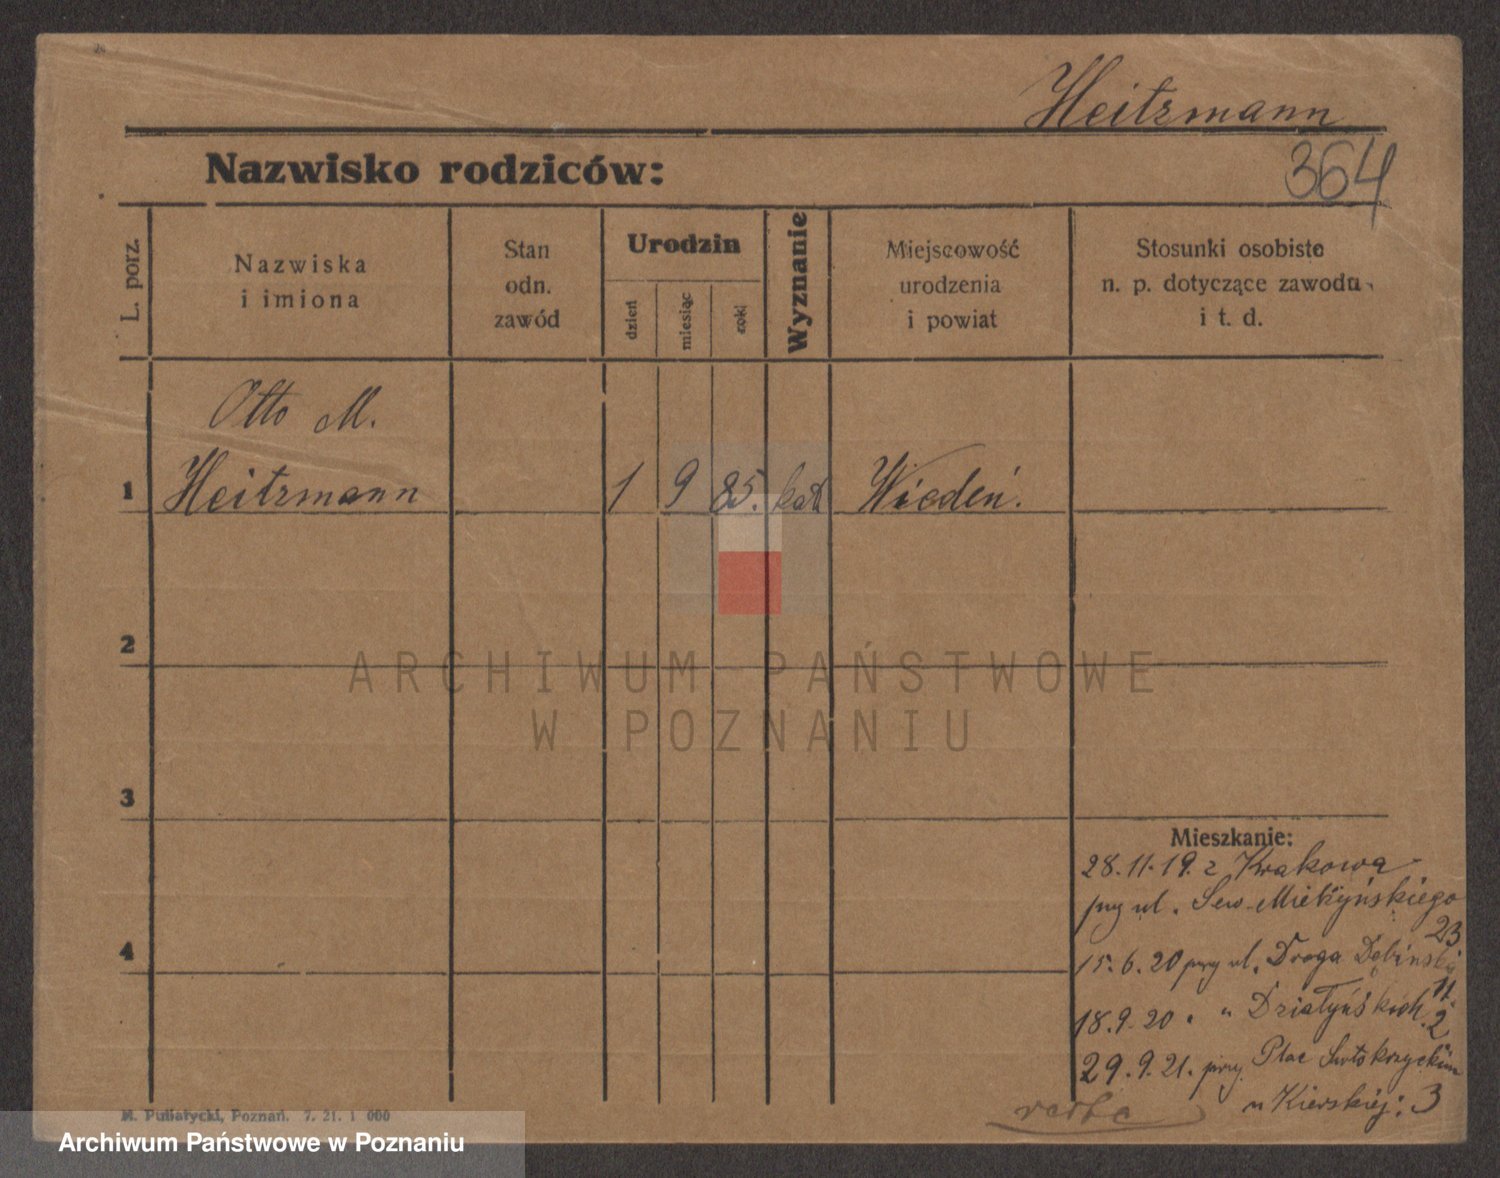 Heitzmann
Nazwisko rodziców:
364
L. porz.
Nazwiska
i imiona
Stan
odn.
zawód
Urodzin
dzień
miesiąc
rok
Wyznanie
Miejscowość
urodzenia
i powiat
Stosunki osobiste
n. p. dotyczące zawodu
i t. d.
Otto M.
1 Heitzmann 1 9 85. kat Wiedeń.
2
ARCHIWUM PAŃSTWOWE
W POZNANIU
3
Mieszkanie:
28.11.19. z Krakowa
przy ul. Sew. Mielżyńskiego
23
4
15.6.20 przy ul. Droga Dębińska
11.
18.9.20 " " Działyńskich 2
29.9.21. przy Plac Świętokrzyskim
Kierskiej: 3
M. Putiatycki, Poznań. 7. 21. 1 000
Archiwum Państwowe w Poznaniu